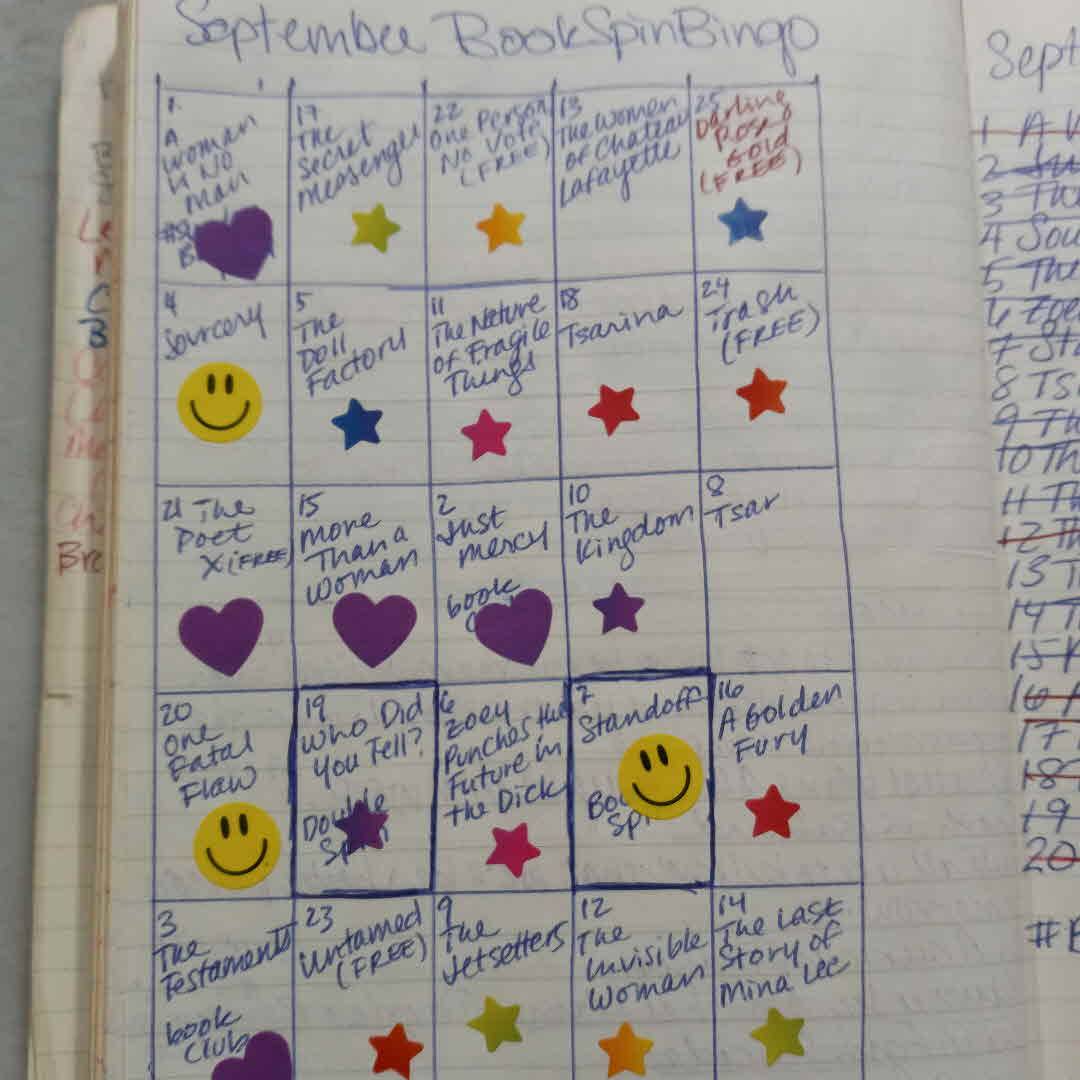 September BookSpinBingo
1.
A
Woman
is No
Man
17
The
Secret
Messenger
22
One Person
No Vote
(FREE)
13
The Women
of Chateau
Lafayette
25
Darling
Rose
Gold
(FREE)
4
Sourcery
5
The
Doll
Factory
11
The Nature
of Fragile
Things
18
Tsarina
24
Trash
(FREE)
21 The
Poet
X (FREE)
15
More
Than a
Woman
2
Just
Mercy
book
10
The
Kingdom
8
Tsar
20
One
Fatal
Flaw
19
Who Did
You Tell?
Double
Spin
6
Zoey
Punches the
Future in
the Dick
7
Standoff
16
A Golden
Fury
3
The
Testaments
book
Club
23
Untamed
(FREE)
9
The
Jetsetters
12
The
Invisible
Woman
14
The Last
Story of
Mina Lee
Sept
1 A
2
3
4 Sou
5 The
6 Zoe
7 Sta
8 Tsa
9 Th
10 Th
11 Th
12 Th
13 T
14 T
15
16
17
18
19
20